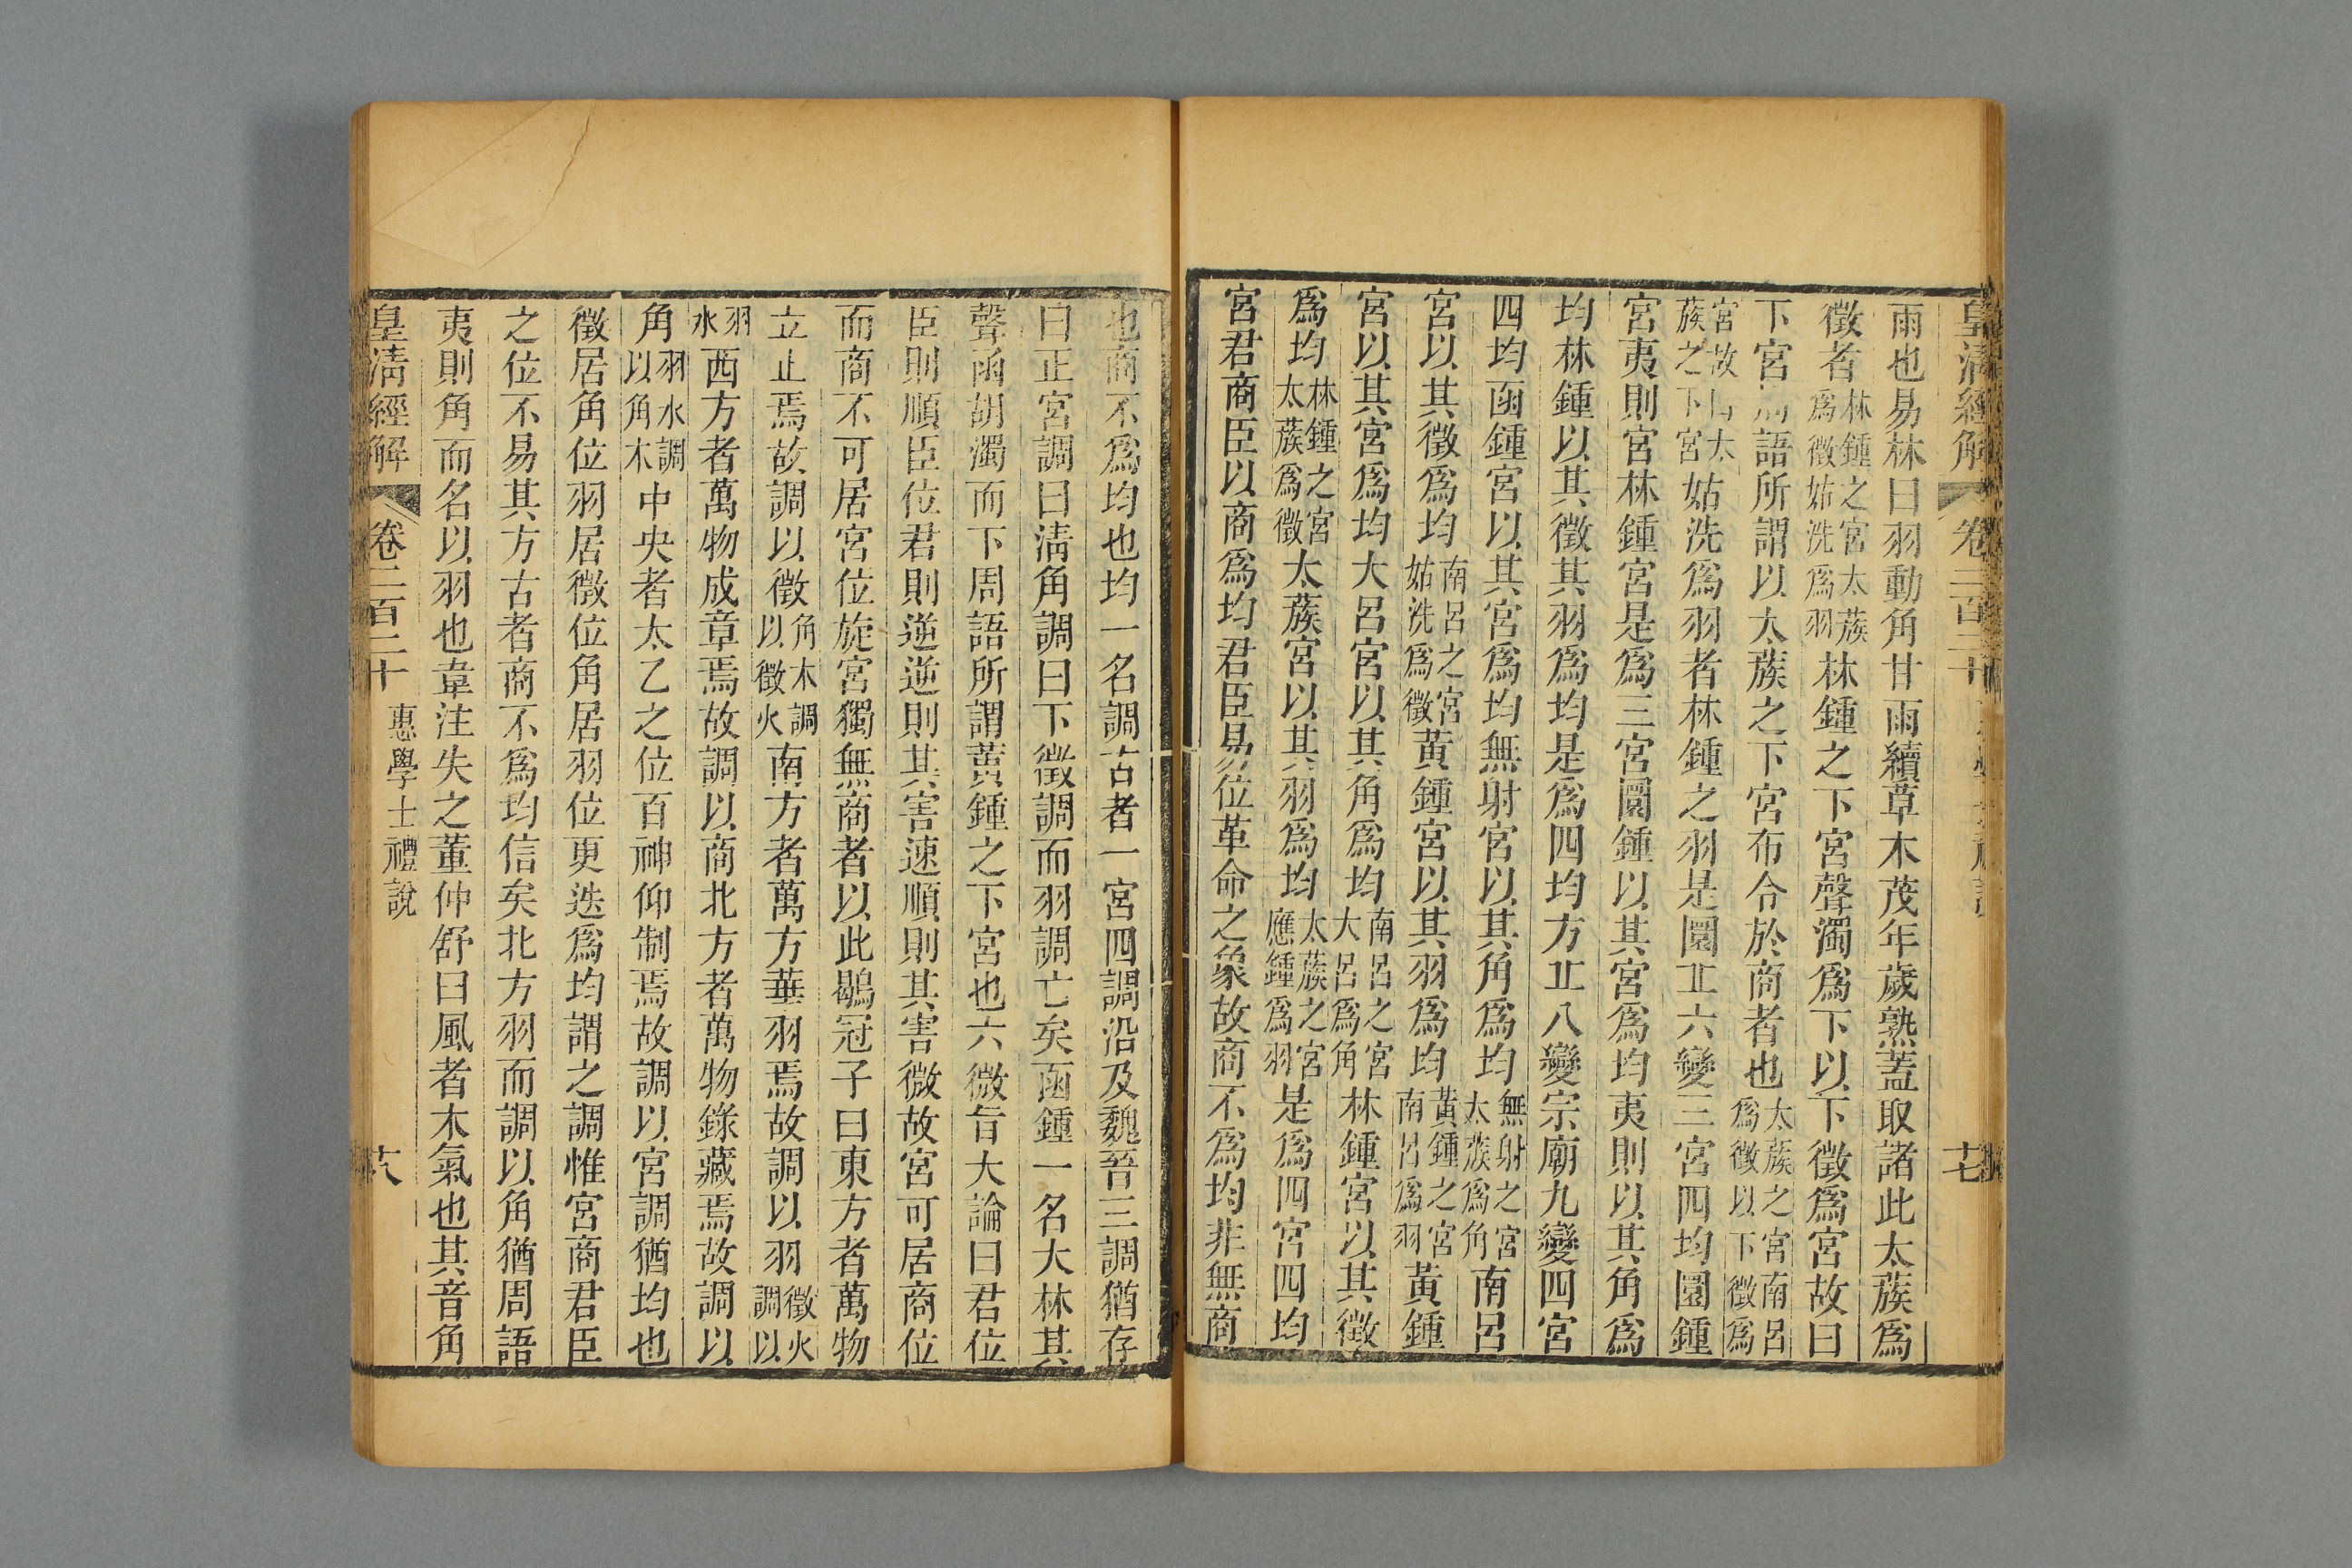 皇清經解 卷二百二十
雨也易林曰羽動角甘雨續草木茂年歲熟蓋取諸此太蔟爲
徵者林鍾之宮太蔟爲徵姑洗爲羽林鍾之下宮聲濁爲下以下徵爲宮故曰
下宮周語所謂以太蔟之下宮布令於商者也太蔟之宮南呂爲徵以下徵爲
宮故曰太蔟之下宮姑洗爲羽者林鍾之羽是圜丘六變三宮四均圜鍾
宮夷則宮林鍾宮是爲三宮圜鍾以其宮爲均夷則以其角爲
均林鍾以其徵其羽爲均是爲四均方丘八變宗廟九變四宮
四均函鍾宮以其宮爲均無射宮以其角爲均無射之宮太蔟爲角南呂
宮以其徵爲均南呂之宮姑洗爲徵黃鍾宮以其羽爲均黃鍾之宮南呂爲羽黃鍾
宮以其宮爲均大呂宮以其角爲均南呂之宮大呂爲角林鍾宮以其徵
爲均林鍾之宮太蔟爲徵太蔟宮以其羽爲均太蔟之宮應鍾爲羽是爲四宮四均
宮君商臣以商爲均君臣易位革命之象故商不爲均非無商
也商不爲均也均一名調古者一宮四調沿及魏晉三調猶存
曰正宮調曰清角調曰下徵調而羽調亡矣函鍾一名大林其
聲函胡濁而下周語所謂黃鍾之下宮也六微旨大論曰君位
臣則順臣位君則逆逆則其害速順則其害微故宮可居商位
而商不可居宮位旋宮獨無商者以此鶡冠子曰東方者萬物
立止焉故調以徵角木調以徵火南方者萬方華羽焉故調以羽徵火調以
羽水西方者萬物成章焉故調以商北方者萬物錄藏焉故調以
角羽水調以角木中央者太乙之位百神仰制焉故調以宮調猶均也
徵居角位羽居徵位角居羽位更迭爲均謂之調惟宮商君臣
之位不易其方古者商不爲均信矣北方羽而調以角猶周語
夷則角而名以羽也韋注失之董仲舒曰風者木氣也其音角
皇清經解 卷二百二十 惠學士禮說 十八